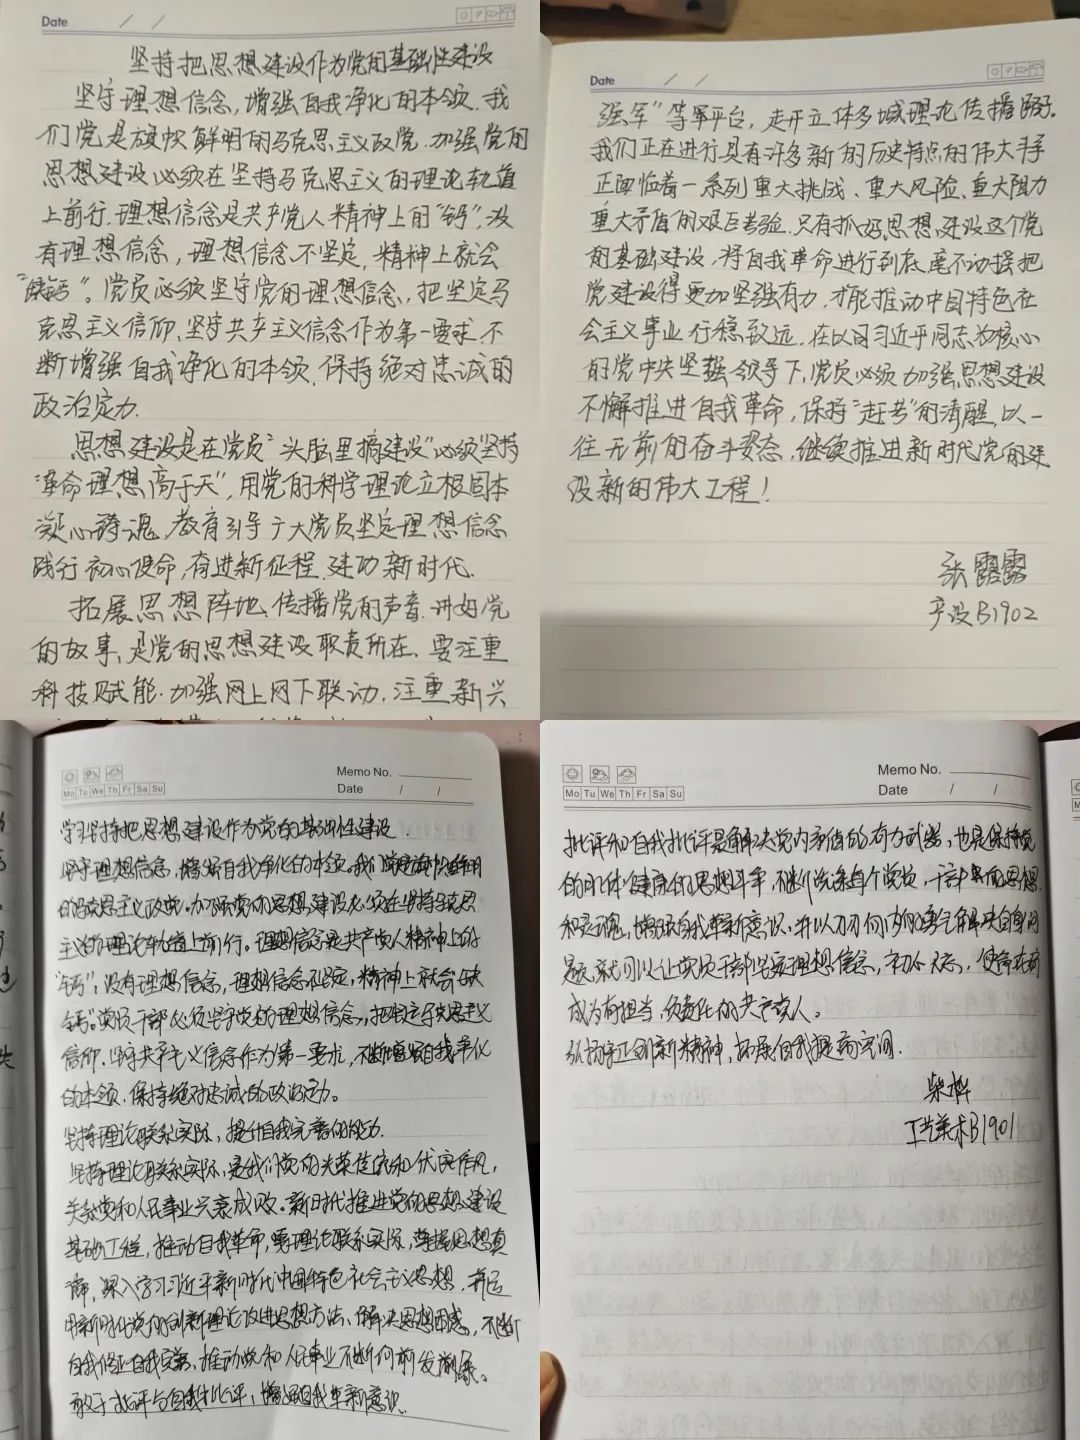 Date / /
坚持把思想建设作为党的基础性建设
坚守理想信念,增强自我净化的本领.我
们党是旗帜鲜明的马克思主义政党.加强党的
思想建设必须在坚持马克思主义的理论轨道
上前行.理想信念是共产党人精神上的“钙”,没
有理想信念,理想信念不坚定,精神上就会
“缺钙”。党员必须坚守党的理想信念,把坚定马
克思主义信仰、坚守共产主义信念作为第一要求.不
断增强自我净化的本领.保持绝对忠诚的
政治定力.
思想建设是在党员“头脑里搞建设”必须坚持
“革命理想高于天”,用党的科学理论立根固本
凝心铸魂,教育引导广大党员坚定理想信念
践行初心使命,奋进新征程.建功新时代.
拓展思想阵地.传播党的声音.讲好党
的故事,是党的思想建设职责所在.要注重
科技赋能.加强网上网下联动.注重新兴
Date / /
强军”等军平台,走开立体多域理论传播路子.
我们正在进行具有许多新的历史特点的伟大斗争
正面临着一系列重大挑战、重大风险、重大阻力
重大矛盾的艰巨考验.只有抓好思想建设这个党
的基础建设,将自我革命进行到底,毫不动摇把
党建设得更加坚强有力.才能推动中国特色社
会主义事业行稳致远.在以习近平同志为核心
的党中央坚强领导下,党员必须加强思想建设
不懈推进自我革命,保持“赶考”的清醒,以一
往无前的奋斗姿态,继续推进新时代党的建
设新的伟大工程!
张露露
产设B1902
Memo No.
Mo Tu We Th Fr Sa Su Date / /
学习坚持把思想建设作为党的基础性建设
坚守理想信念,增强自我净化的本领.我们党是旗帜鲜明
的马克思主义政党.加强党的思想建设必须在坚持马克思
主义的理论轨道上前行.理想信念是共产党人精神上的
“钙”,没有理想信念,理想信念不坚定,精神上就会“缺
钙”。党员干部必须坚守党的理想信念,把坚定马克思主义
信仰.坚守共产主义信念作为第一要求,不断增强自我净化
的本领.保持绝对忠诚的政治定力。
坚持理论联系实际,提升自我完善的能力.
坚持理论联系实际,是我们党的光荣传统和优良作风,
关系党和人民事业兴衰成败。新时代推进党的思想建设
基础工程,推动自我革命,要理论联系实际,掌握思想真
谛,深入学习习近平新时代中国特色社会主义思想,
用新时代党的创新理论改进思想方法、解决思想困惑,不断
自我修正自我完善,推动党和人民事业不断向前发展。
敢于批评与自我批评,增强自我革新意识.
Memo No.
Mo Tu We Th Fr Sa Su Date / /
批评和自我批评是解决党内矛盾的有力武器,也是保持党
的肌体健康的思想斗争,不断洗涤每个党员、干部的思想
和灵魂,增强自我革新意识.并以刀刃向内的勇气解决自身问
题,就可以让党员干部坚定理想信念,初心不忘,使命在肩
成为有担当,负责任的共产党人。
弘扬守正创新精神,拓展自我提高空间.
柴桦
工艺美术B1901